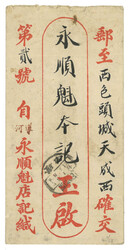 郵至丙色頭城天成西確交
永順魁本記玉啟
第貳號
自河永順魁店記緘